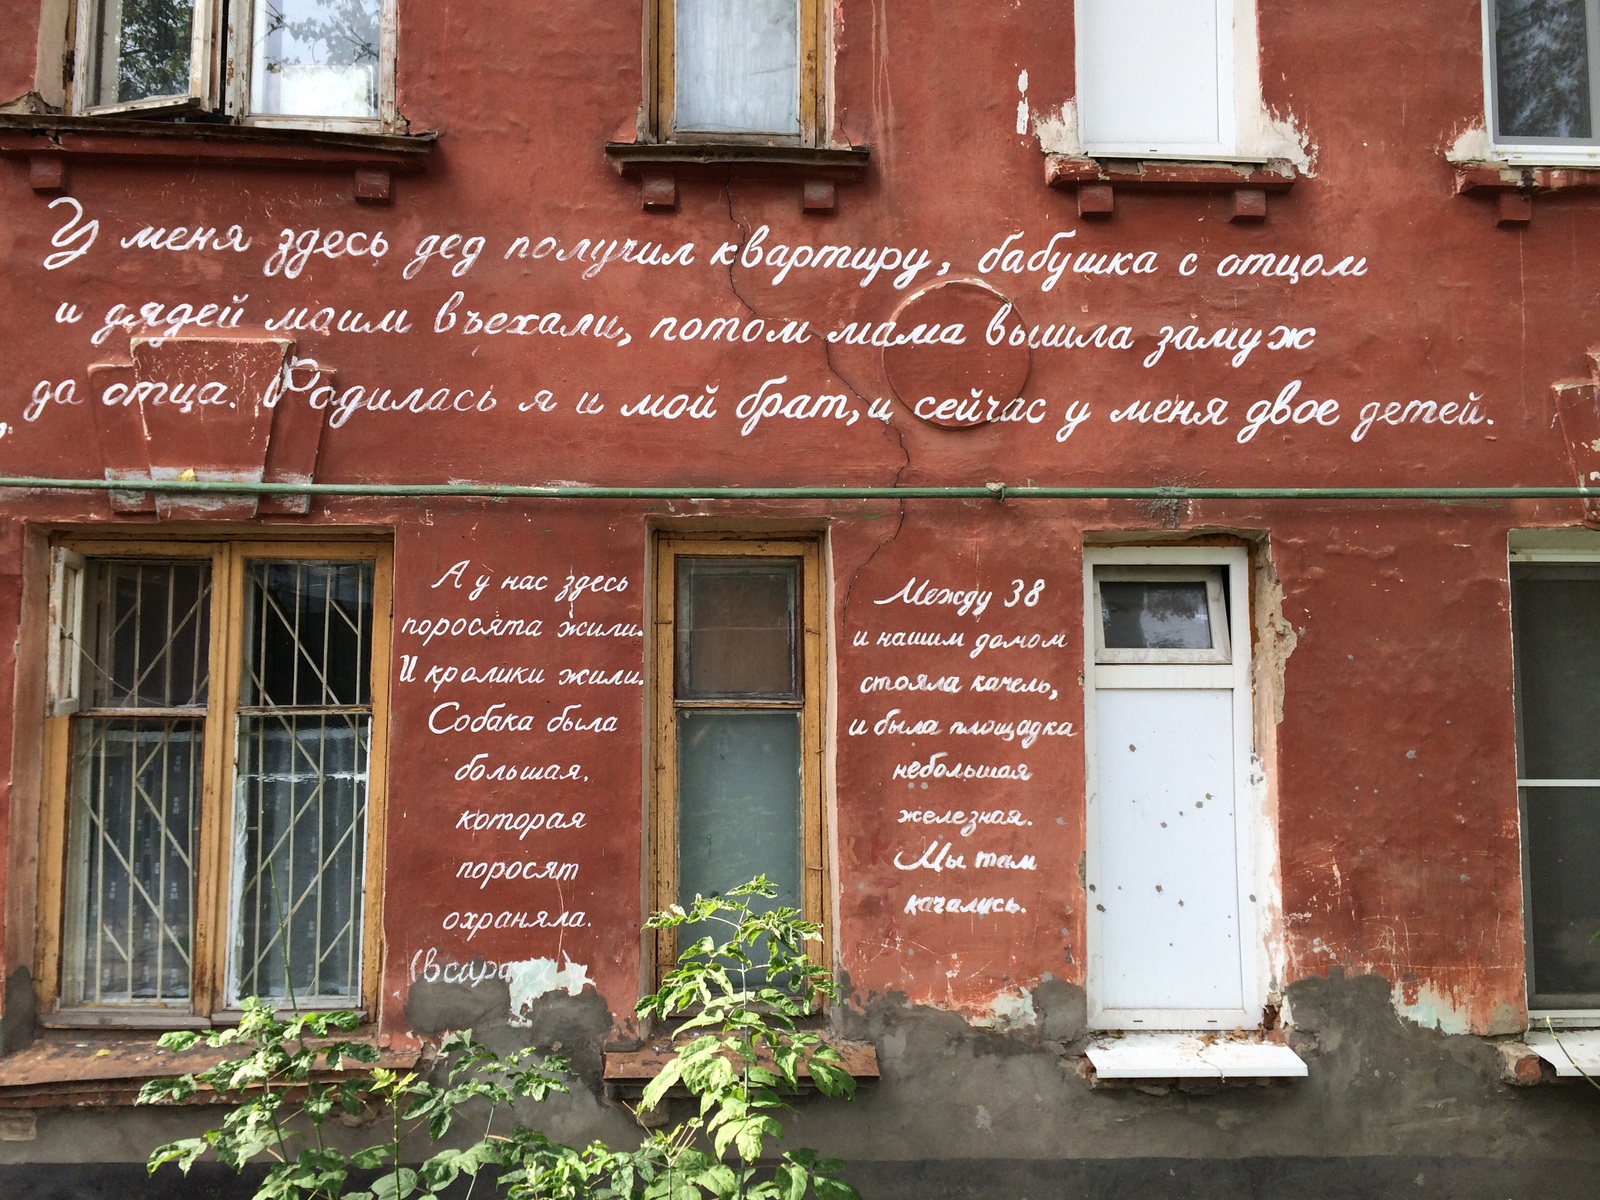 У меня здесь дед получил квартиру, бабушка с отцом
и дядей моим въехали, потом мама вышла замуж
да отца. Родилась я и мой брат, и сейчас у меня двое детей.
А у нас здесь
поросята жили.
И кролики жили.
Собака была
большая,
которая
поросят
охраняла.
Между 38
и нашим домом
стояла качель,
и была площадка
небольшая
железная.
Мы там
качались.